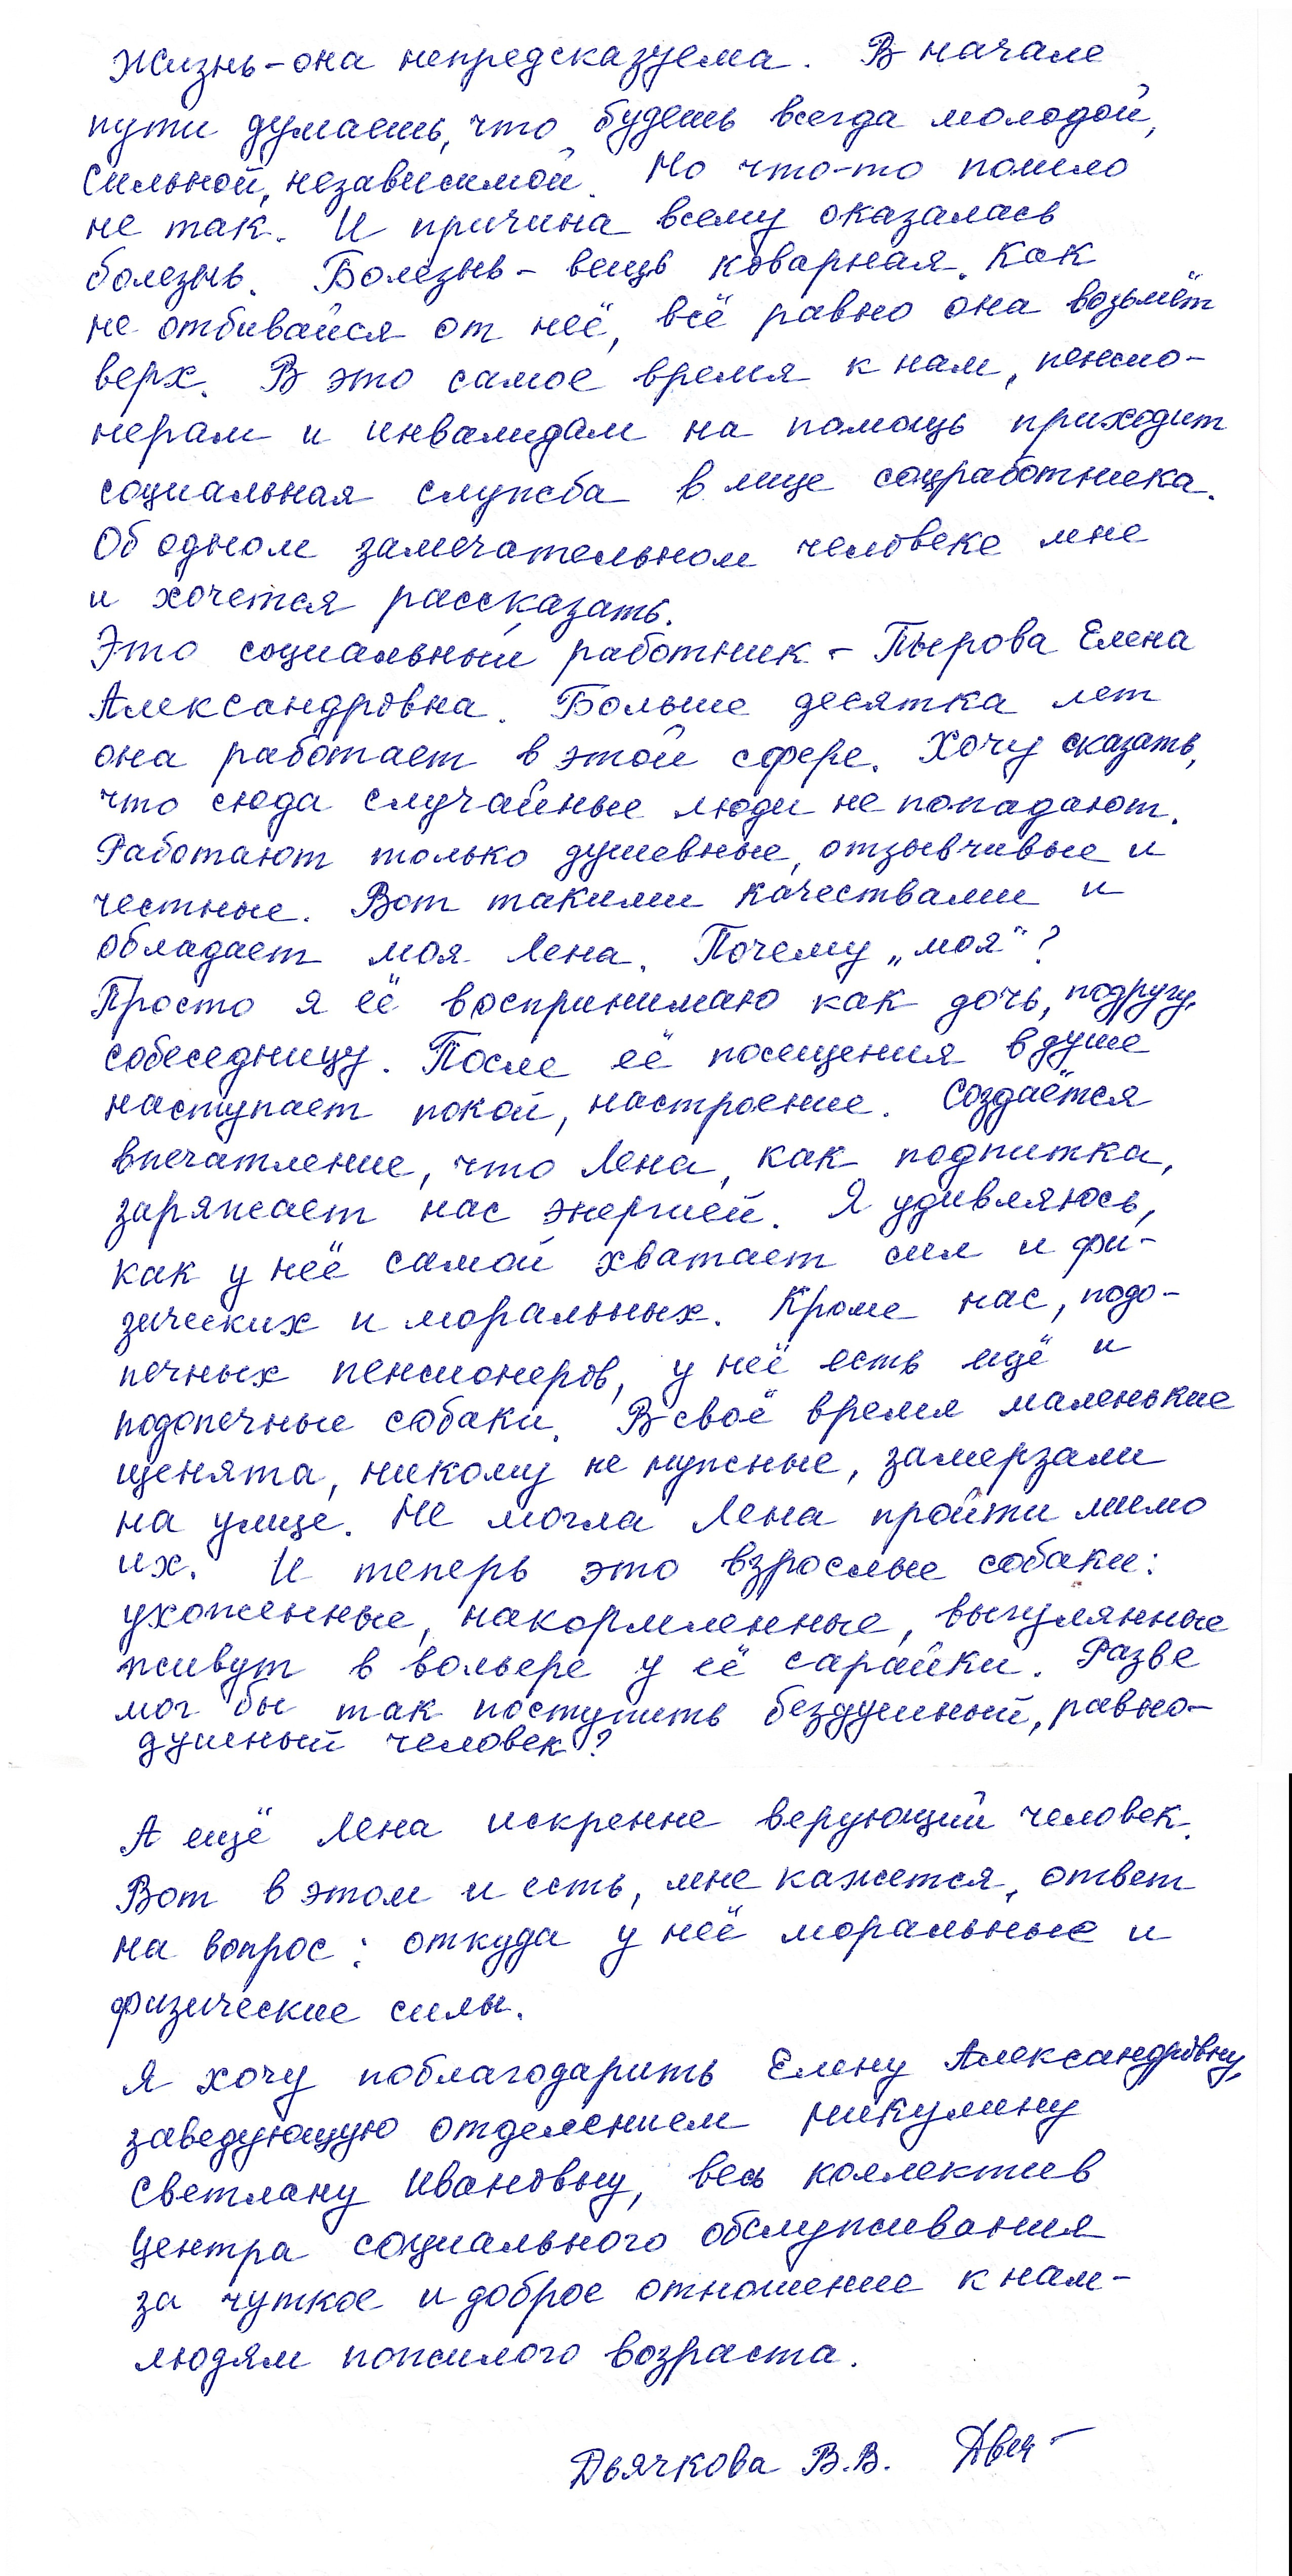 Жизнь - она непредсказуема. В начале
пути думаешь, что будешь всегда молодой,
сильной, независимой. Но что-то пошло
не так. И причина всему оказалась
болезнь. Болезнь - вещь коварная. Как
не отбивайся от неё, всё равно она возьмёт
верх. В это самое время к нам, пенсио-
нерам и инвалидам на помощь приходит
социальная служба в лице соцработника.
Об одном замечательном человеке мне
и хочется рассказать.
Это социальный работник - Пырова Елена
Александровна. Больше десятка лет
она работает в этой сфере. Хочу сказать,
что сюда случайные люди не попадают.
Работают только душевные, отзывчивые и
честные. Вот такими качествами и
обладает моя Лена. Почему „моя"?
Просто я её воспринимаю как дочь, подругу,
собеседницу. После её посещения в душе
наступает покой, настроение. Создаётся
впечатление, что Лена, как подпитка,
заряжает нас энергией. Я удивляюсь,
как у неё самой хватает сил и фи-
зических и моральных. Кроме нас, подо-
печных пенсионеров, у неё есть ещё и
подопечные собаки. В своё время маленькие
щенята, никому не нужные, замерзали
на улице. Не могла Лена пройти мимо
их. И теперь это взрослые собаки:
ухоженные, накормленные, выгулянные
живут в вольере у её сарайки. Разве
мог бы так поступить бездушный, равно-
душный человек?
А ещё Лена искренне верующий человек.
Вот в этом и есть, мне кажется, ответ
на вопрос: откуда у неё моральные и
физические силы.
Я хочу поблагодарить Елену Александровну,
заведующую отделением Микулину
Светлану Ивановну, весь коллектив
Центра социального обслуживания
за чуткое и доброе отношение к нам -
людям пожилого возраста.
Дьячкова В.В.